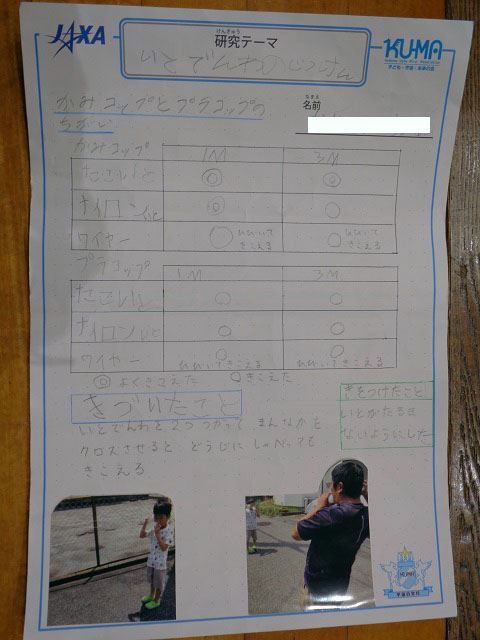 JAXA
けんきゅう
研究テーマ
いとでんわのじっけん
KU-MA
子ども・宇宙・未来の会
かみコップとプラコップの
ちがい
なまえ
名前
かみコップ 1M 3M
たこいと ◎ ◎
ナイロンいと ◎ ○
ワイヤー ○ ひびいて きこえる ○ ひびいて きこえる
プラコップ 1M 3M
たこいと ○ ○
ナイロンいと ○ ○
ワイヤー ○ ひびいてきこえる ○ ひびいてきこえる
◎よくきこえた ○きこえた
きづいたこと
いとでんわを2つつかって まんなかを
クロスさせると どうじにしゃべっても
きこえる
きをつけたこと
いとがたるま
ないようにした
KU-MA
宇宙の学校